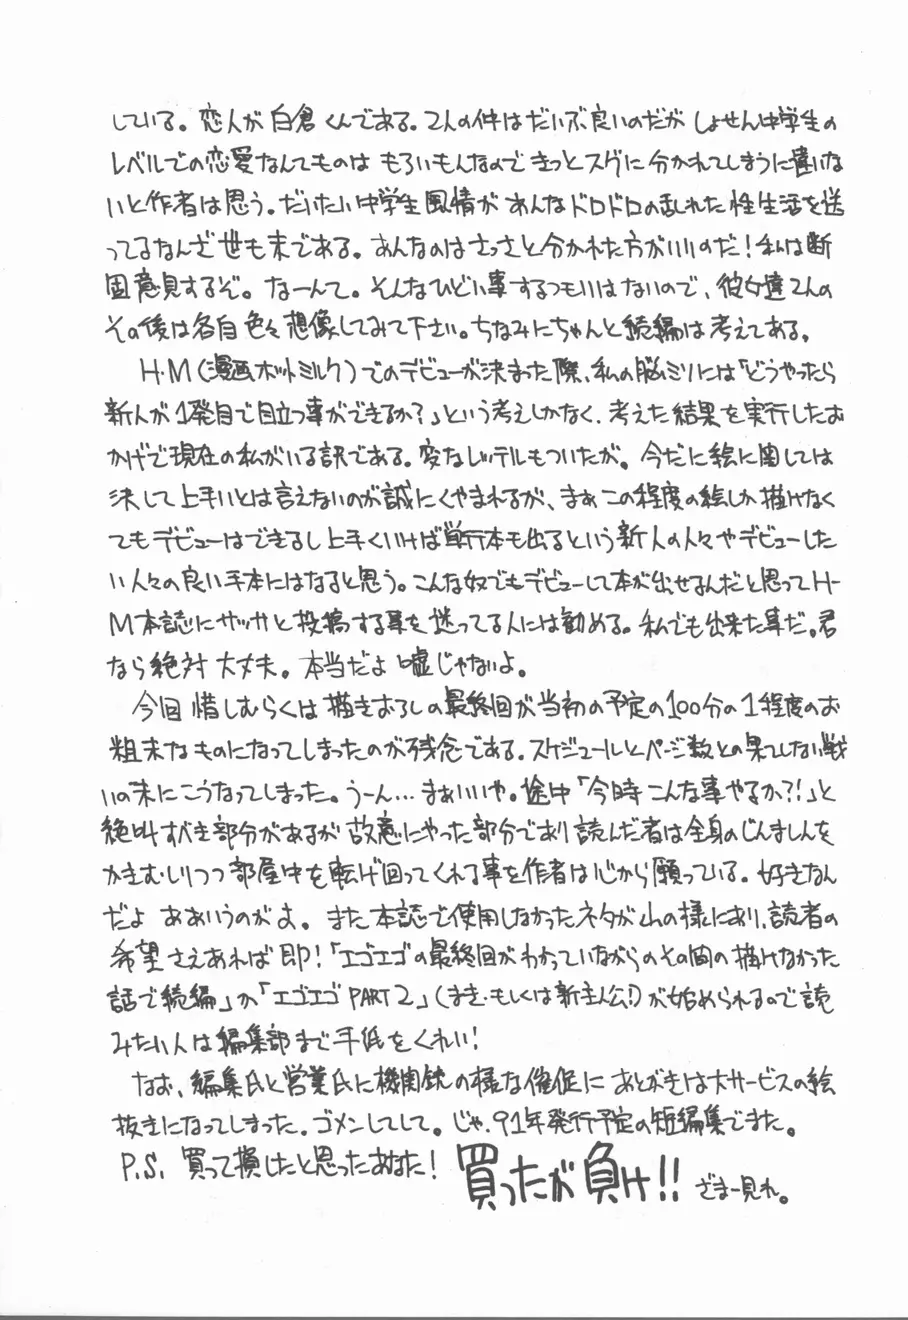 している。恋人が白倉くんである。2人の件はだいぶ良いのだがしょせん中学生の
レベルでの恋愛なんてものはもろいもんなのできっとスグに分かれてしまうに違いな
いと作者は思う。だいたい中学生風情があんなドロドロの乱れた性生活を送
ってるなんざ世も末である。あんなのはさっさと分かれた方がいいのだ!私は断
固意見するぞ。なーんて。そんなひどい事するつもりはないので、彼女達2人の
その後は各自色々想像してみて下さい。ちなみにちゃんと続編は考えてある。
H・M(漫画ホットミルク)でのデビューが決まった際、私の脳ミソには「どうやったら
新人が1発目で目立つ事ができるか?」という考えしかなく、考えた結果を実行したお
かげで現在の私がいる訳である。変なレッテルもついたが。今だに絵に関しては
決して上手いとは言えないのが誠にくやまれるが、まぁこの程度の絵しか描けなく
てもデビューはできるし上手くいけば単行本も出るという新人の人々やデビューした
い人々の良い手本にはなると思う。こんな奴でもデビューして本が出せるんだと思ってH・
M本誌にサッサと投稿する事を迷ってる人には勧める。私でも出来た事だ。君
なら絶対大丈夫。本当だよ嘘じゃないよ。
今回惜しむらくは描きおろしの最終回が当初の予定の100分の1程度のお
粗末なものになってしまったのが残念である。スケジュールとページ数との果てしない戦
いの末にこうなってしまった。うーん…まぁいいや。途中「今時こんな事やるか?!」と
絶叫すべき部分があるが故意にやった部分であり読んだ者は全身のじんましんを
かきむしりつつ部屋中を転げ回ってくれる事を作者は心から願っている。好きなん
だよああいうのがよ。また本誌で使用しなかったネタが山の様にあり、読者の
希望さえあれば即!「エゴエゴの最終回がわかっていながらのその間の描けなかった
話で続編」か「エゴエゴPART2」(まき・もしくは新主人公!)が始められるので読
みたい人は編集部まで手紙をくれい!
なお、編集氏と営業氏に機関銃の様な催促にあとがきは大サービスの絵
抜きになってしまった。ゴメンしてして。じゃ、91年発行予定の短編集でまた。
P.S. 買って損したと思ったあなた!買ったが負け!!ざまー見れ。